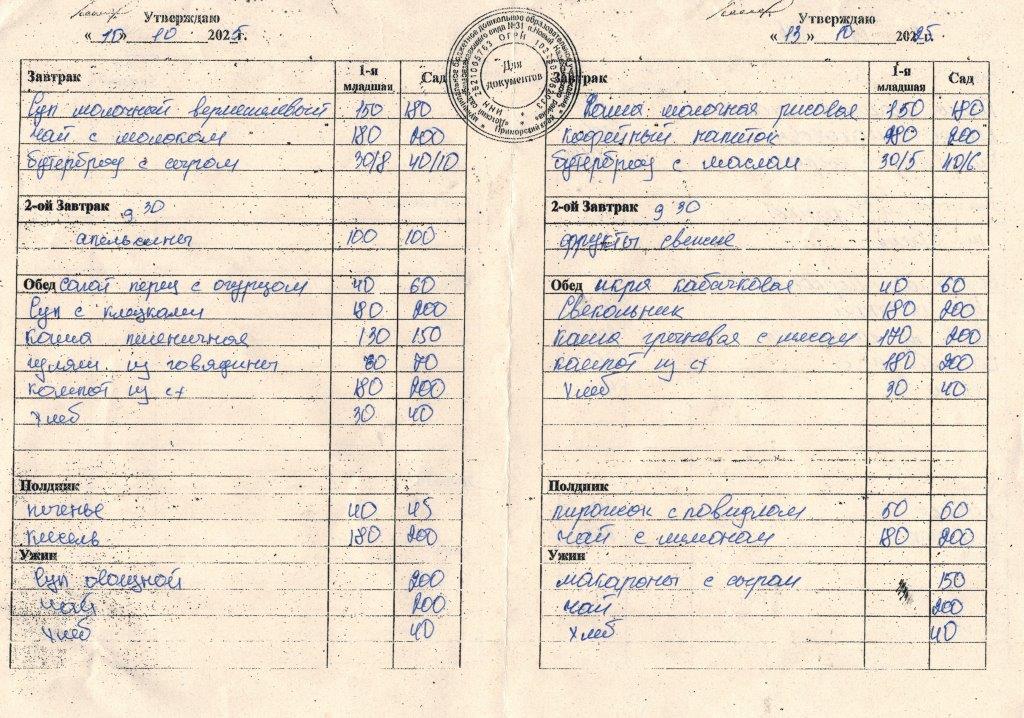 Утверждаю
« 10 » 10 2025г.
Завтрак 1-я младшая Сад
Суп молочный вермишелевый 150 180
Чай с молоком 180 200
бутерброд с сыром 30/8 40/10
2-ой Завтрак 9 30
апельсины 100 100
Обед салат перец с огурцом 40 60
Суп с клецками 180 200
Каша пшеничная 130 150
гуляш из говядины 70
компот из сх 180 200
хлеб 30 40
Полдник
печенье 40 45
кисель 180 200
Ужин
Суп овощной 200
чай 200
хлеб 40
Для документов
Утверждаю
« 13 » 10 2025г.
Завтрак 1-я младшая Сад
Каша молочная рисовая 150 180
Кофейный напиток 180 200
бутерброд с маслом 30/5 40/6
2-ой Завтрак 9 30
фрукты свежие
Обед икра кабачковая 40 60
Свекольник 180 200
Каша гречневая с мясом 170 200
компот из сх 180 200
хлеб 30 40
Полдник
пирожок с повидлом 60 60
чай с лимоном 180 200
Ужин
макароны с сыром 150
чай 200
хлеб 40